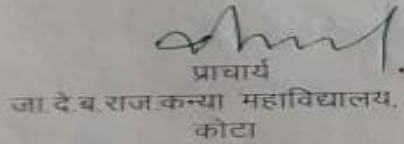 प्राचार्य
जा.दे.ब.राज.कन्या महाविद्यालय,
कोटा